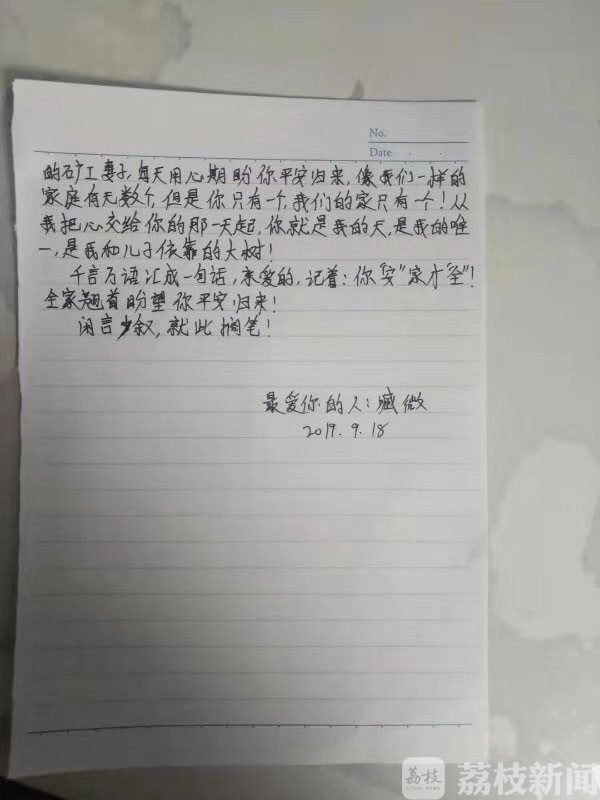 No.
Date . .
的矿工妻子,每天用心期盼你平安归来,像我们一样的
家庭有无数个,但是你只有一个,我们的家只有一个!从
我把心交给你的那一天起,你就是我的天,是我的唯
一,是我和儿子依靠的大树!
千言万语汇成一句话,亲爱的,记着:你“安”家才“全”!
全家翘首盼望你平安归来!
闲言少叙,就此搁笔!
最爱你的人:臧微
2019.9.18
荔枝 荔枝新闻